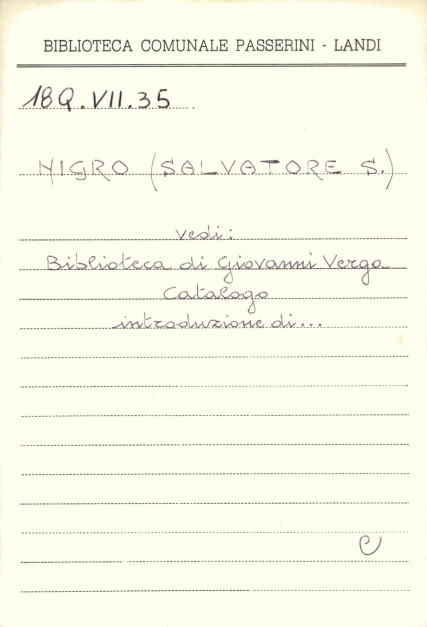 BIBLIOTECA COMUNALE PASSERINI - LANDI
18Q.VII.35
NIGRO (SALVATORE S.)
vedi:
Biblioteca di Giovanni Verga
Catalogo
introduzione di...